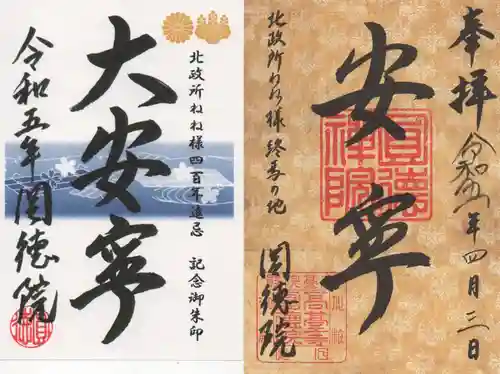 北政所ねね様四百年遠忌 記念御朱印
大安寧
令和五年 圓徳院
奉拝 令和五年四月三日
安寧
北政所ねね様終焉の地
圓徳院
圓德禅院